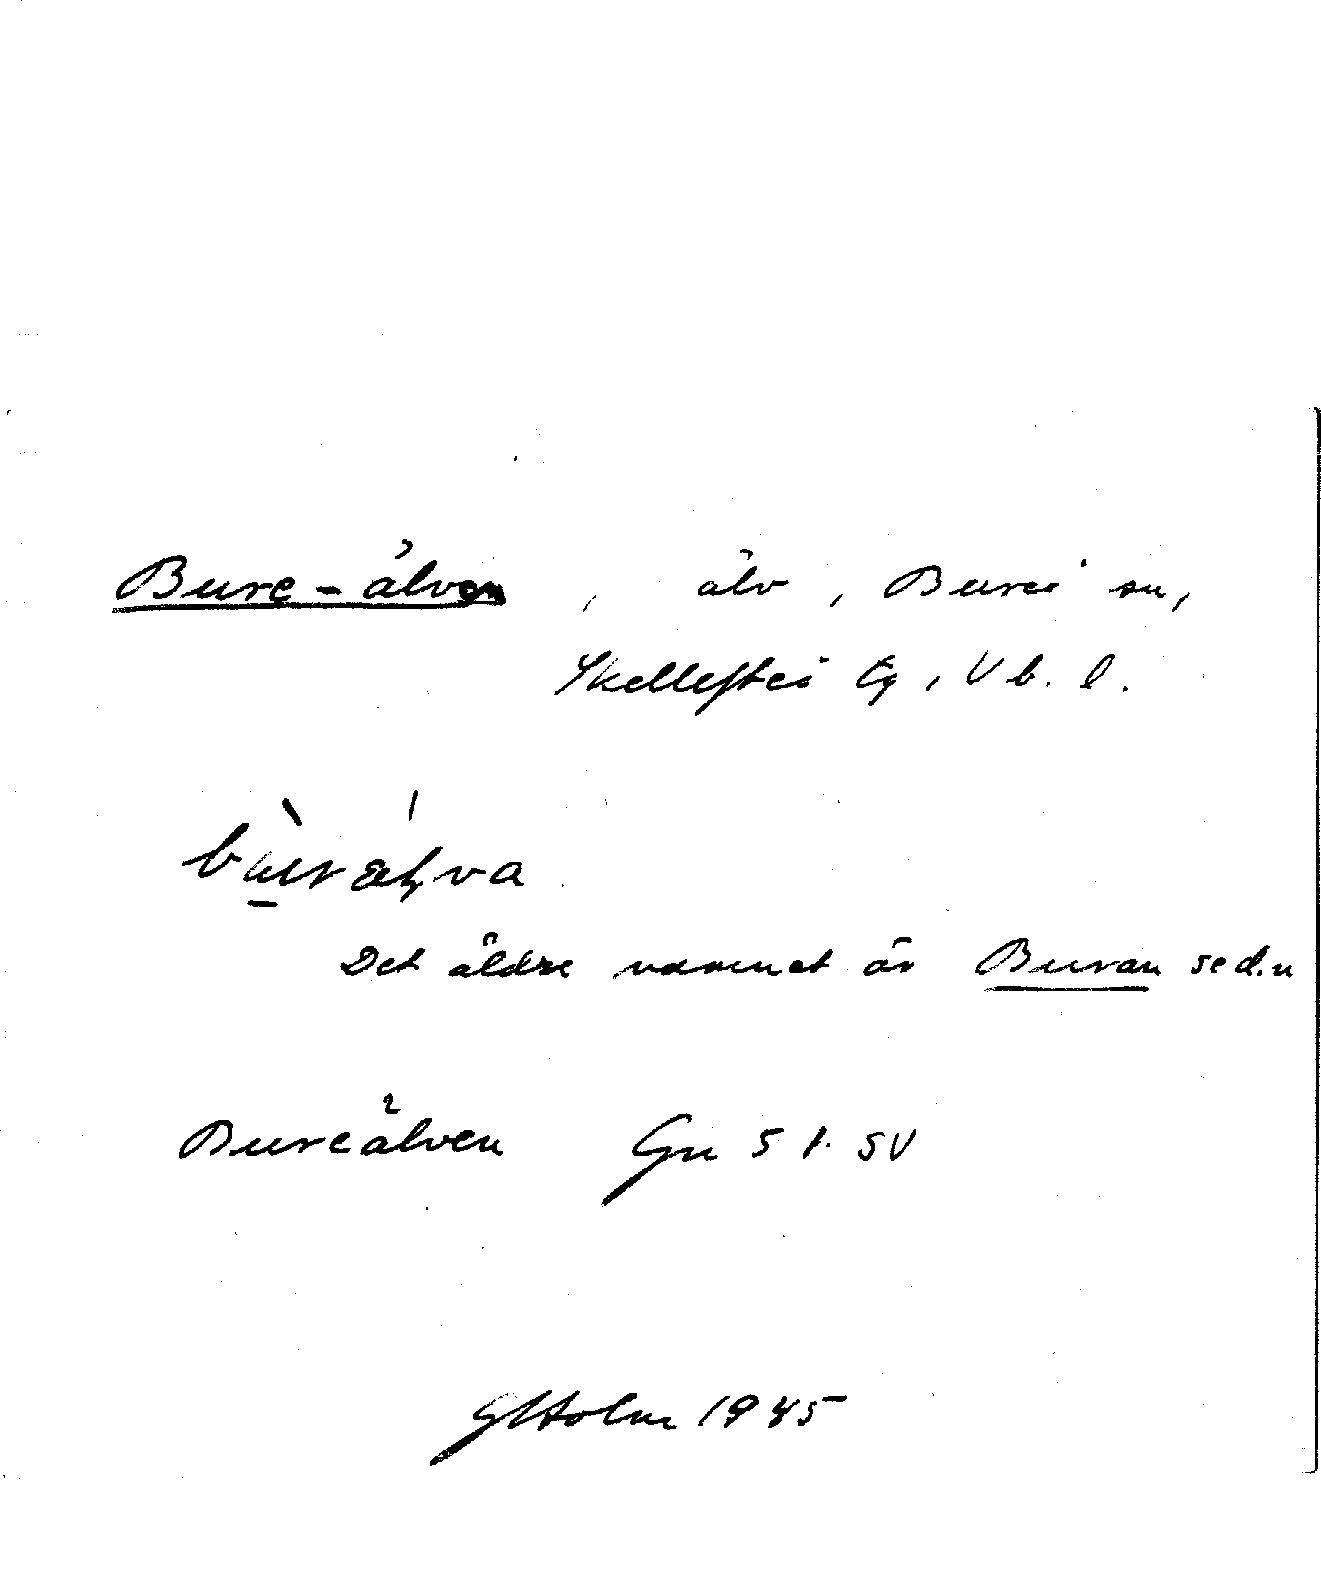 Bure-älven, älv, Bureå sn,
Skellefteå tg, Vb. l.
Det äldre namnet är Buran se d.u
Bureälven Gn 51 SV
GHolm 1945